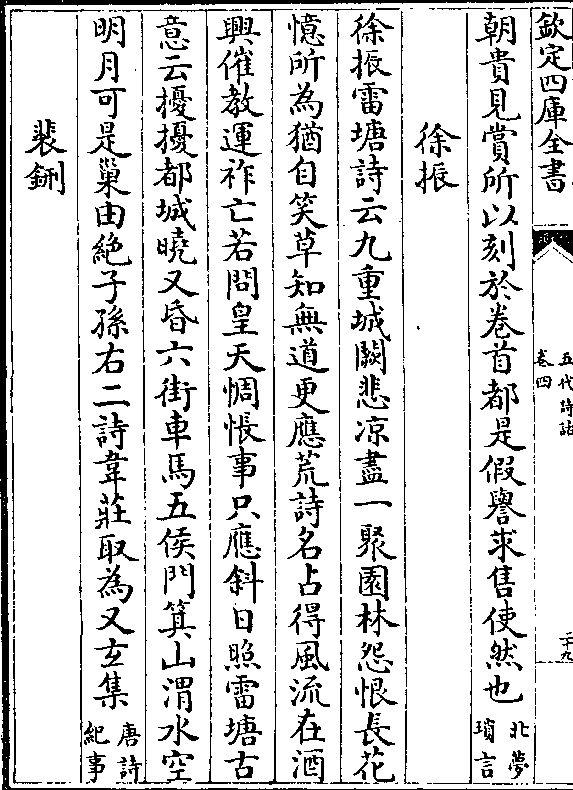 欽定四庫全書
五代詩話
卷四
二十九
朝貴見賞所以刻於卷首都是假譽求售使然也
北夢
瑣言
徐振
徐振雷塘詩云九重城闕悲凉盡一聚園林怨恨長花
憶所為猶自笑草知無道更應荒詩名占得風流在酒
興催教運祚亡若問皇天惆悵事只應斜日照雷塘古
意云擾擾都城曉又昏六街車馬五侯門箕山渭水空
明月可是巢由絶子孫右二詩韋莊取為又玄集
唐詩
紀事
裴鉶